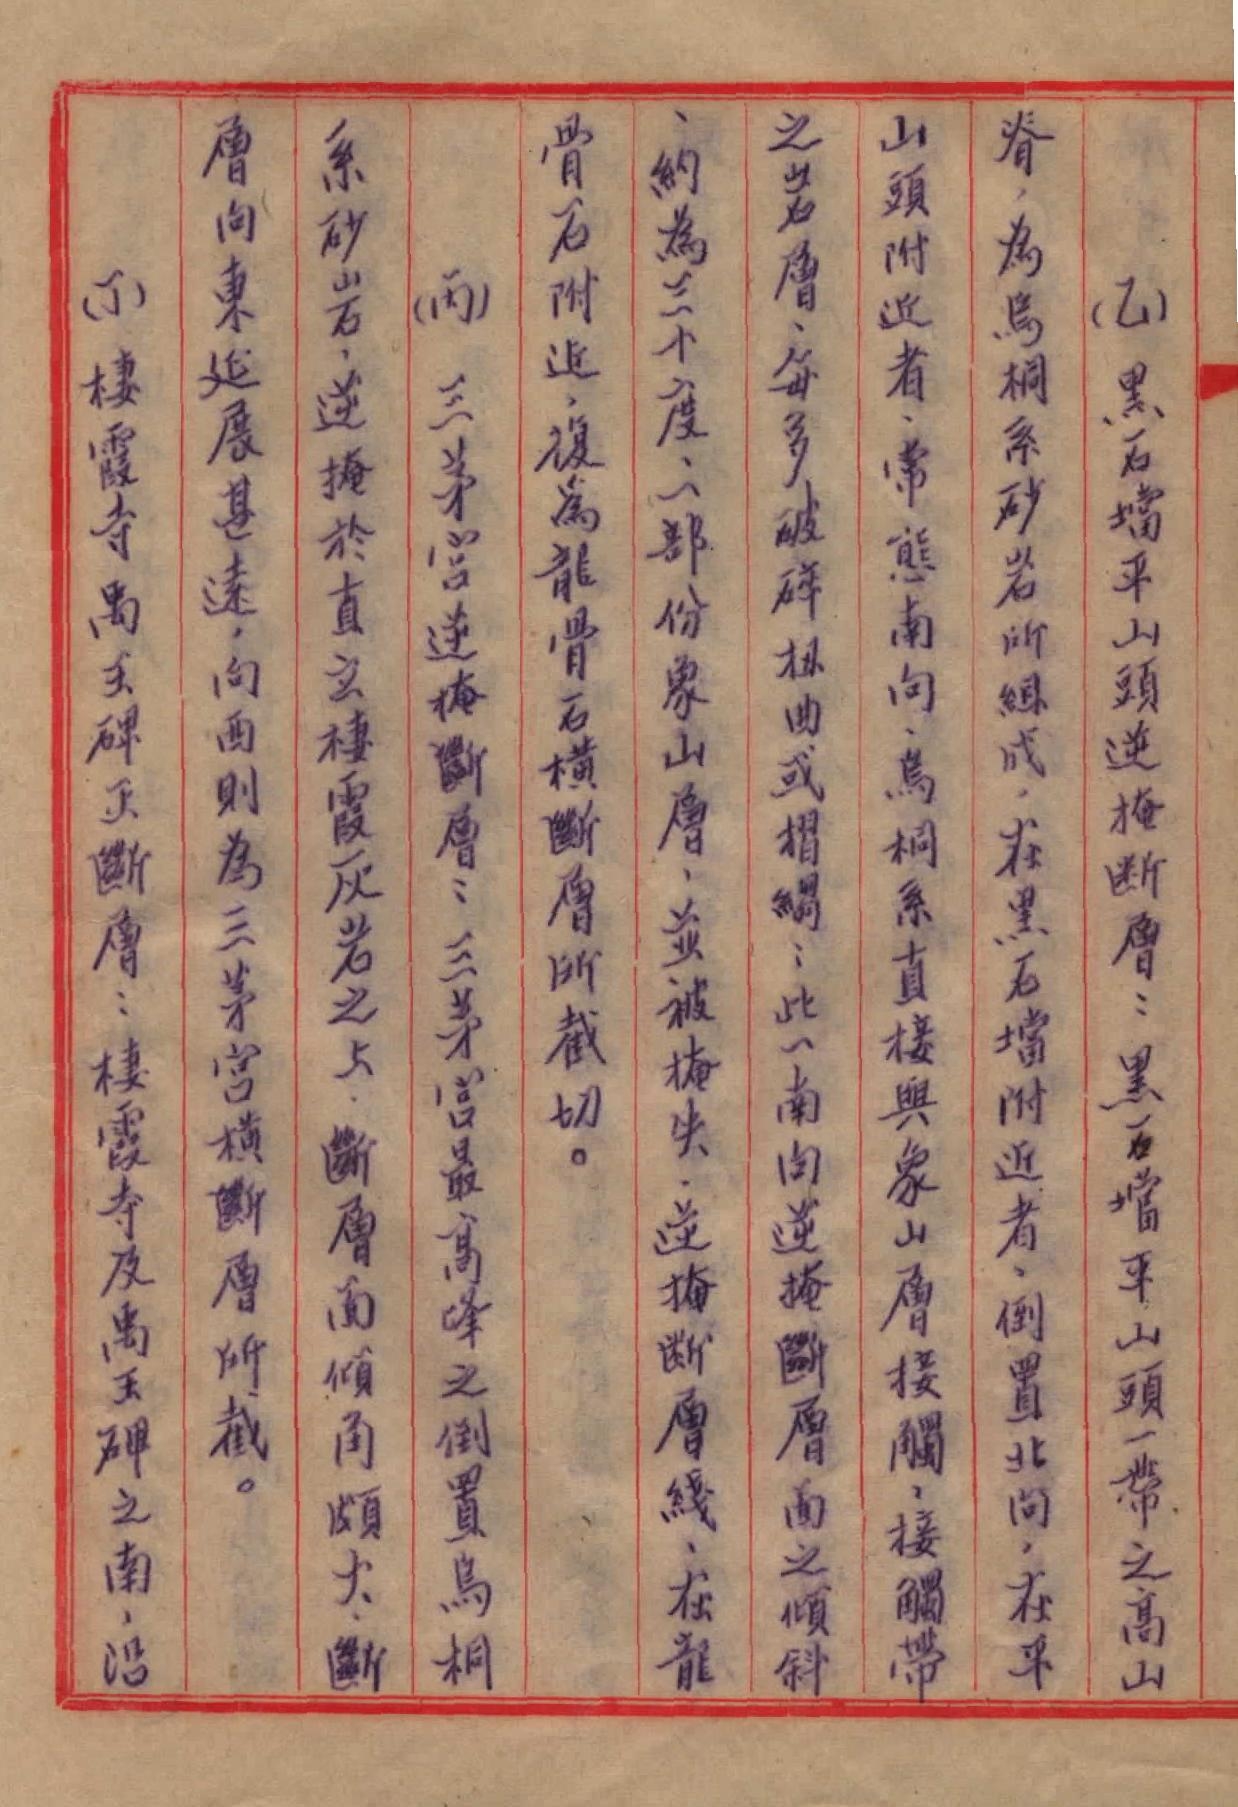 (乙)黑石壋平山頭逆掩断層：黑石壋平山頭一帶之高山
脊，為烏桐系砂岩所組成，在黑石壋附近者、倒置北向，在平
山頭附近者、常態南向、烏桐系直接與象山層接觸，接觸帶
之岩層、每多破碎扭曲或摺縐：此一南向逆掩斷層面之傾斜
、約為三十度、一部份象山層，並被掩失．逆掩断層綫、在龍
骨石附近，復為龍骨石橫斷層所截切。
(丙)三茅宮逆掩斷層：三茅宮最高峰之倒置烏桐
系砂岩，逆掩於直立棲霞灰岩之上．斷層面傾角頗大、斷
層向東延展甚遠，向西則為三茅宮橫斷層所截。
(丁)棲霞寺禹王碑天斷層：棲霞寺及禹王碑之南，沿